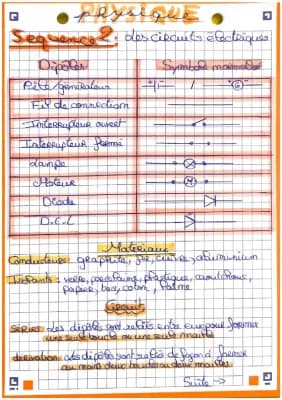 PHYSIQUE
physique
Sequence 2 : les circuits électriques
Dipôles Symbole normalisé
Pile/generateur / G
Fil de connection
Interrupteur ouvert
Interrupteur fermé
Lampe
Moteur M
Diode
D.E.L
Materiaux
Conducteurs : graphite, fer, cuivre, aluminium
Isolants : verre, porcelaine, plastique, caoutchouc,
papier, bois, coton, laine
Circuit
Séries : les dipôles sont reliés entre eux pour former
une seule boucle ou une seule maille
derivation : les dipôles sont reliés de façon à former
au moins deux boucles ou deux mailles
Suite →